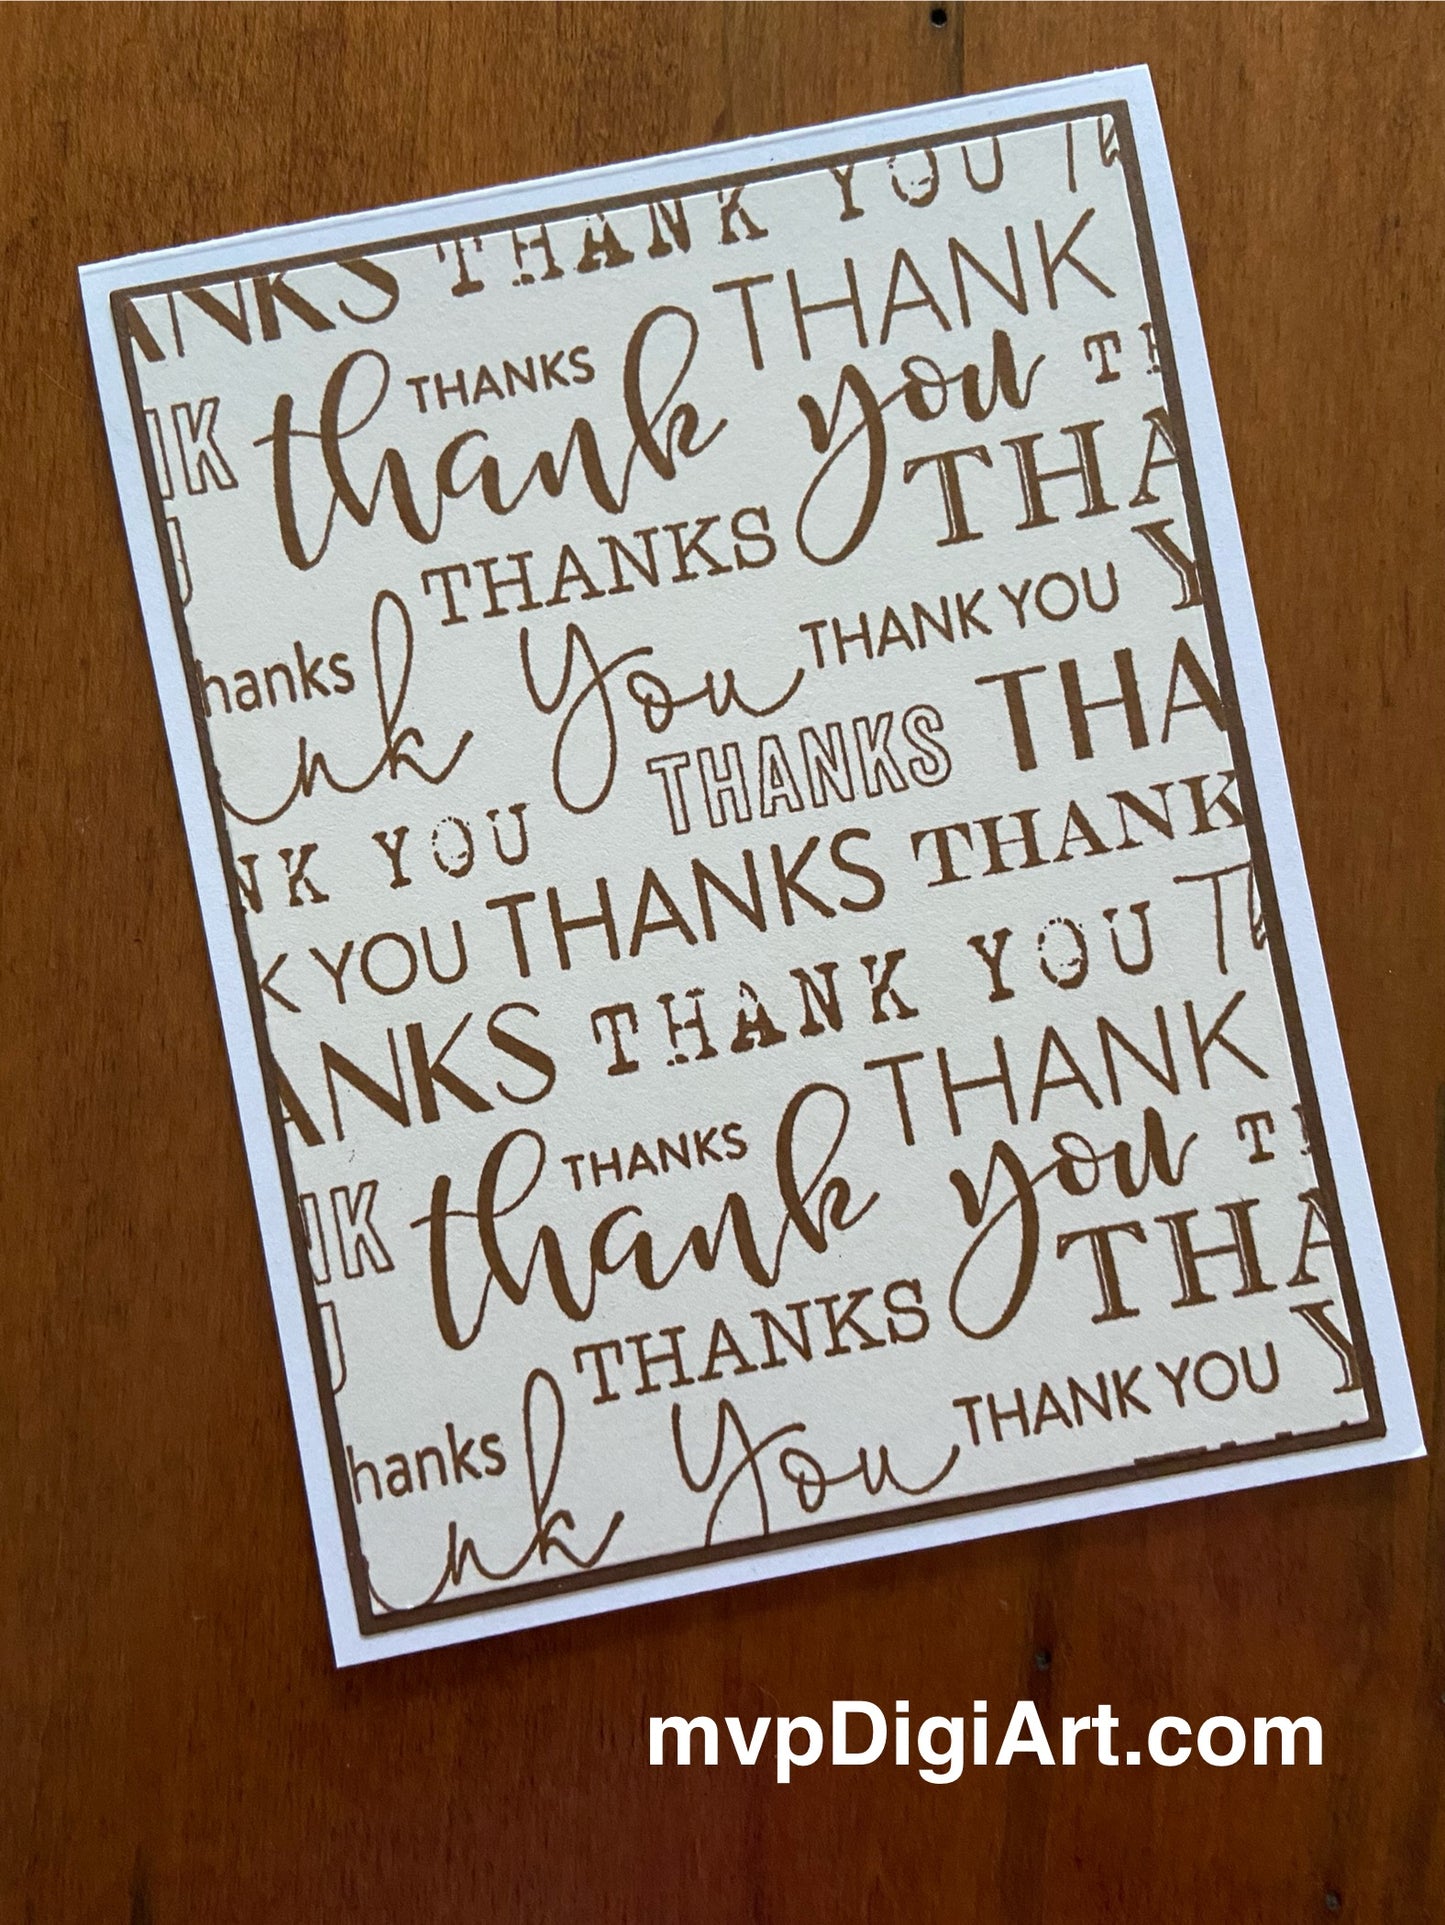 ANKS THANK YOU
THANKS THANK
IK thank you TH
THANKS THA
hanks nk you THANK YOU Y
THANKS THA
NK YOU
K YOU THANKS THANK
ANKS THANK YOU TH
THANKS THANK
IK thank you TH
THANKS THA
hanks nk you THANK YOU Y
mvpDigiArt.com